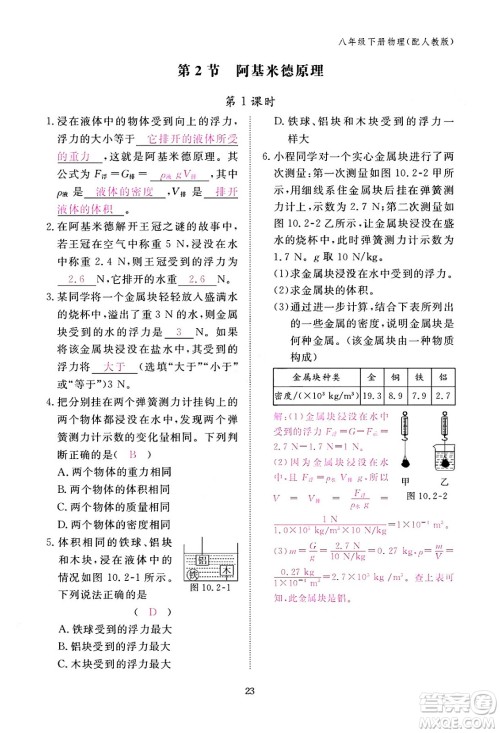 八年级下册物理(配人教版)
第2节 阿基米德原理
第1课时
1.浸在液体中的物体受到向上的浮力,
浮力的大小等于 它排开的液体所受
的重力 ,这就是阿基米德原理。其
公式为 F浮=G排= ρ液gV排 ,其中
ρ液是 液体的密度 ,V排是 排开
液体的体积 。
2.在阿基米德解开王冠之谜的故事中,
若王冠在空气中称重5 N,浸没在水中
称重2.4 N,则王冠浸没在水中受到的
浮力为 2.6 N,它排开的水重 2.6 N。
3.某同学将一个金属块轻轻放入盛满水
的烧杯中,溢出了重力为3 N的水,则
金属块受到的浮力为 3 N。如果
将该金属块浸没在盐水中,它受到的浮
力 大于 (选填“大于”“小于”
或“等于”)3 N。
4.把分别挂在两个弹簧测力计挂钩上的
两个物体都浸没在水中,发现两个弹
簧测力计示数的变化量相同。下列判
断正确的是( B )
A.两个物体的重力相同
B.两个物体的体积相同
C.两个物体的质量相同
D.两个物体的密度相同
5.体积相同的铁球、铝块
和木块,浸在液体中的
情况如图10.2-1所示。
下列说法正确的是
( D )
铝
铁
木
图10.2-1
A.铁球受到的浮力最大
B.铝块受到的浮力最大
C.木块受到的浮力最大
D.铁球、铝块和木块受到的浮力一
样大
6.小程同学对一个实心金属块进行了两
次测量:第一次测量如图10.2-2甲所
示,用细线系住金属块挂在弹簧测力
计上,弹簧测力计示数为2.7 N;第二
次测量如图10.2-2乙所示,金属块浸没在盛
水的烧杯中,弹簧测力计示数为
1.7 N。(g取10 N/kg)
(1)求金属块在水中受到的浮力。
(2)求金属块的体积。
(3)通过计算并结合下表中所给出
的一些金属的密度,说明金属块是由哪种物质
构成的?
金属块种类 金 铜 铁 铝
密度/(×10³ kg/m³) 19.3 8.9 7.9 2.7
解:(1)金属块浸没在水中
受到的浮力 F浮=G-F=
2.7 N-1.7 N=1 N。
(2)金属块浸没在水中,
V=V排,因为F浮=
ρ水V排g,所以V排=F浮/ρ水g=
1 N/1.0×10³ kg/m³×10 N/kg=1×10⁻⁴ m³。
甲 乙
图10.2-2
(3)m=G/g=2.7 N/10 N/kg=0.27 kg,ρ=m/V=
0.27 kg/1×10⁻⁴ m³=2.7×10³ kg/m³。查上表可
知此金属块是铝。
23